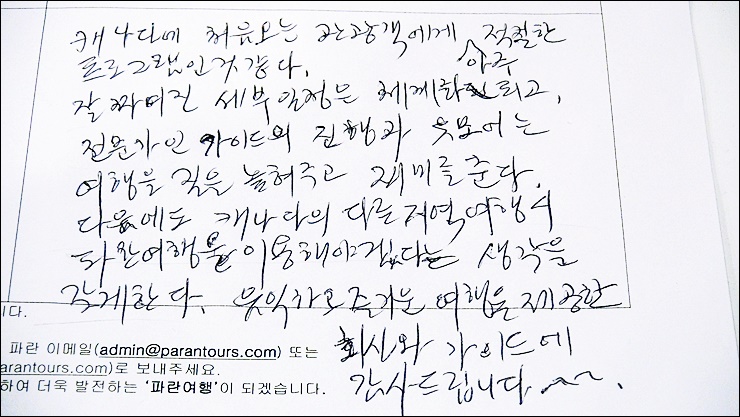 캐나다에 처음오는 관광객에게 아주 적절한
프로그램인것 같다.
잘 짜여진 세부일정은 체계화 되고,
전문가인 가이드의 진행과 유모어는
여행을 질을 높혀주고 재미를 준다.
다음에도 캐나다의 다른지역 여행시
파란여행을 이용해야겠다는 생각을
갖게한다. 유익하고 즐거운 여행을 제공한
회사와 가이드에
감사드립니다.
니다.
파란 이메일(admin@parantours.com) 또는
arantours.com)로 보내주세요.
하여 더욱 발전하는 '파란여행'이 되겠습니다.